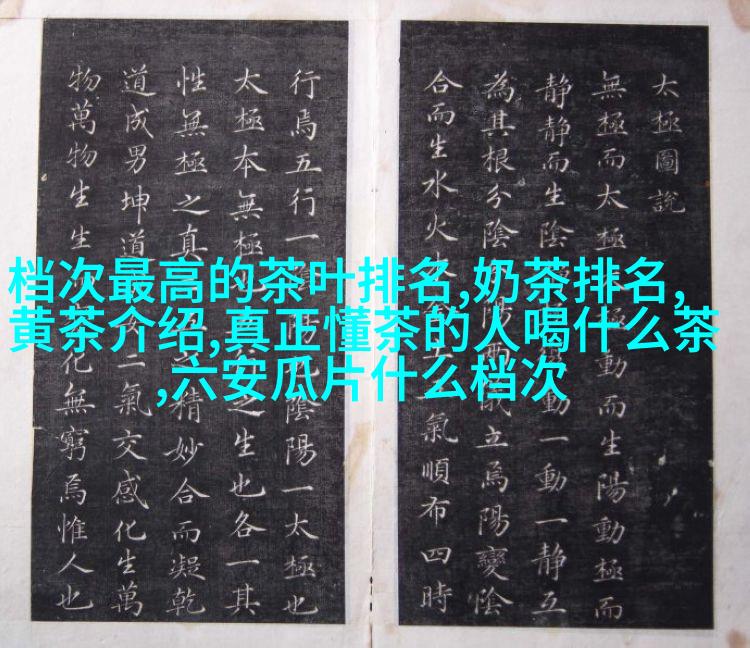 档次最高的茶叶排名,奶茶排名,
黄茶介绍,真正懂茶的人喝什么茶
,六安瓜片什么档次
太極圖說
無極而太極極動而生陽動極而
静静而生陰動一動一静互
為其根分陰陽兩儀立焉陽變陰
合而生水火氣順布四時
行焉五行一陰陽一太極也
太極本無極之生也各一其
性無極之真精妙合而凝乾
道成男坤道二氣交感化生萬
物萬物生生化無窮焉惟人也